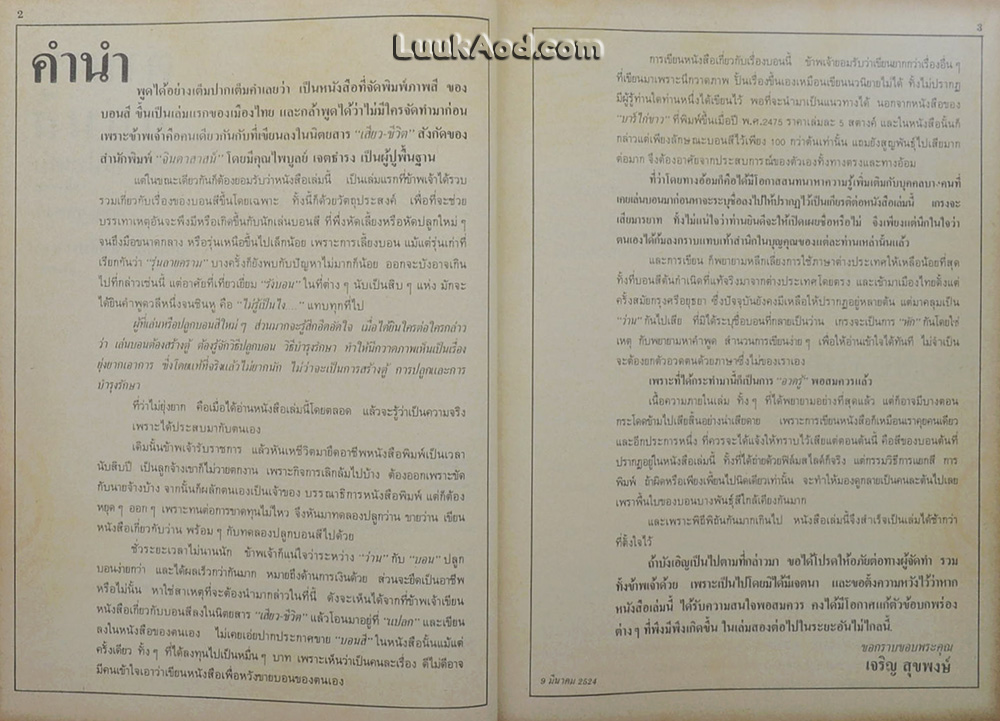 2
คำนำ
พูดได้อย่างเต็มปากเต็มคำเลยว่า เป็นหนังสือที่จัดพิมพ์ภาพสี ของ
บอนสี ขึ้นเป็นเล่มแรกของเมืองไทย และกล้าพูดได้ว่าไม่มีใครจัดทำมาก่อน
เพราะข้าพเจ้าคือคนเดียวกันกับที่เขียนลงในนิตยสาร "เสี่ยว-ชีวิต" สังกัดของ
สำนักพิมพ์ "จินดาสาส์น์" โดยมีคุณไพบูลย์ เจตธำรง เป็นผู้ปูพื้นฐาน
แต่ในขณะเดียวกันก็ต้องยอมรับว่าหนังสือเล่มนี้ เป็นเล่มแรกที่ข้าพเจ้าได้รวบ
รวมเกี่ยวกับเรื่องของบอนสีขึ้นโดยเฉพาะ ทั้งนี้ก็ด้วยวัตถุประสงค์ เพื่อที่จะช่วย
บรรเทาเหตุอันจะพึงมีหรือเกิดขึ้นกับนักเล่นบอนสี ที่พึ่งหัดเลี้ยงหรือหัดปลูกใหม่ ๆ
จนถึงมือขนาดกลาง หรือรุ่นเหนือขึ้นไปเล็กน้อย เพราะการเลี้ยงบอน แม้แต่รุ่นเก่าที่
เรียกกันว่า "รุ่นลายคราม" บางครั้งก็ยังพบกับปัญหาไม่มากก็น้อย ออกจะบังอาจเกิน
ไปที่กล่าวเช่นนี้ แต่อาศัยที่เที่ยวเยี่ยม "รังบอน" ในที่ต่าง ๆ นับเป็นสิบ ๆ แห่ง มักจะ
ได้ยินคำพูดวลีหนึ่งจนชินหู คือ "ไม่รู้เป็นไง...." แทบทุกที่ไป
ผู้ที่เล่นหรือปลูกบอนสีใหม่ ๆ ส่วนมากจะรู้สึกอึดอัดใจ เมื่อได้ยินใครต่อใครกล่าว
ว่า เล่นบอนต้องสร้างตู้ ต้องรู้จักวิธีปลูกบอน วิธีบำรุงรักษา ทำให้นึกวาดภาพเห็นเป็นเรื่อง
ยุ่งยากเอาการ ซึ่งโดยแท้ที่จริงแล้วไม่ยากนัก ไม่ว่าจะเป็นการสร้างตู้ การปลูกและการ
บำรุงรักษา
ที่ว่าไม่ยุ่งยาก คือเมื่อได้อ่านหนังสือเล่มนี้โดยตลอด แล้วจะรู้ว่าเป็นความจริง
เพราะได้ประสบมากับตนเอง
เดิมนั้นข้าพเจ้ารับราชการ แล้วหันเหชีวิตมายึดอาชีพหนังสือพิมพ์เป็นเวลา
นับสิบปี เป็นลูกจ้างเขาก็ไม่วายตกงาน เพราะกิจการเลิกล้มไปบ้าง ต้องออกเพราะขัด
กับนายจ้างบ้าง จากนั้นก็ผลักตนเองเป็นเจ้าของ บรรณาธิการหนังสือพิมพ์ แต่ก็ต้อง
หยุด ๆ ออก ๆ เพราะทนต่อการขาดทุนไม่ไหว จึงหันมาทดลองปลูกว่าน ขายว่าน เขียน
หนังสือเกี่ยวกับว่าน พร้อม ๆ กับทดลองปลูกบอนสีไปด้วย
ชั่วระยะเวลาไม่นานนัก ข้าพเจ้าก็แน่ใจว่าระหว่าง "ว่าน" กับ "บอน" ปลูก
บอนง่ายกว่า และได้ผลเร็วกว่ากันมาก หมายถึงด้านการเงินด้วย ส่วนจะยึดเป็นอาชีพ
หรือไม่นั้น หาใช่สาเหตุที่จะต้องนำมากล่าวในที่นี้ ดังจะเห็นได้จากที่ข้าพเจ้าเขียน
หนังสือเกี่ยวกับบอนสีลงในนิตยสาร "เสี่ยว-ชีวิต" แล้วโอนมาอยู่ที่ "แปลก" และเขียน
ลงในหนังสือของตนเอง ไม่เคยเอ่ยปากประกาศขาย "บอนสี" ในหนังสือนั้นแม้แต่
ครั้งเดียว ทั้ง ๆ ที่ได้ลงทุนไปเป็นหมื่น ๆ บาท เพราะเห็นว่าเป็นคนละเรื่อง ดีไม่ดีอาจ
มีคนเข้าใจเอาว่าเขียนหนังสือเพื่อหวังขายบอนของตนเอง
LuukAod.com
3
การเขียนหนังสือเกี่ยวกับเรื่องบอนนี้ ข้าพเจ้ายอมรับว่าเขียนยากกว่าเรื่องอื่น ๆ
ที่เขียนมาเพราะนึกวาดภาพ ปั้นเรื่องขึ้นเองเหมือนเขียนนวนิยายไม่ได้ ทั้งไม่ปรากฏ
มีผู้รู้ท่านใดท่านหนึ่งได้เขียนไว้ พอที่จะนำมาเป็นแนวทางได้ นอกจากหนังสือของ
"บาร์ไก่ขาว" ที่พิมพ์ขึ้นเมื่อปี พ.ศ.2475 ราคาเล่มละ 5 สตางค์ และในหนังสือนั้นก็
กล่าวแต่เพียงลักษณะบอนสีไว้เพียง 100 กว่าต้นเท่านั้น แถมยังสูญพันธุ์ไปเสียมาก
ต่อมาก จึงต้องอาศัยจากประสบการณ์ของตัวเองทั้งทางตรงและทางอ้อม
ที่ว่าโดยทางอ้อมก็คือได้มีโอกาสสนทนาหาความรู้เพิ่มเติมกับบุคคลบางคนที่
เคยเล่นบอนมาก่อนหากจะระบุชื่อลงไปให้ปรากฏไว้เป็นเกียรติต่อหนังสือเล่มนี้ เกรงจะ
เสียมารยาท ทั้งไม่แน่ใจว่าท่านยินดีจะให้เปิดเผยชื่อหรือไม่ จึงเพียงแต่นึกในใจว่า
ตนเองได้ก้มลงกราบแทบเท้าสำนึกในบุญคุณของแต่ละท่านเหล่านั้นแล้ว
และการเขียน ก็พยายามหลีกเลี่ยงการใช้ภาษาต่างประเทศให้เหลือน้อยที่สุด
ทั้งที่บอนสีต้นกำเนิดที่แท้จริงมาจากต่างประเทศโดยตรง และเข้ามาเมืองไทยตั้งแต่
ครั้งสมัยกรุงศรีอยุธยา ซึ่งปัจจุบันยังคงมีเหลือให้ปรากฏอยู่หลายต้น แต่มาคลุมเป็น
"ว่าน" กันไปเสีย ที่มิได้ระบุชื่อบอนที่กลายเป็นว่าน เกรงจะเป็นการ "หัก" กันโดยใช่
เหตุ กับพยายามหาคำพูด สำนวนการเขียนง่าย ๆ เพื่อให้อ่านเข้าใจได้ทันที ไม่จำเป็น
จะต้องยกตัวอวดตนด้วยภาษาซึ่งไม่ของเราเอง
เพราะที่ได้กระทำมานี้ก็เป็นการ "อวดรู้" พอสมควรแล้ว
เนื้อความภายในเล่ม ทั้ง ๆ ที่ได้พยายามอย่างที่สุดแล้ว แต่ก็อาจมีบางตอน
กระโดดข้ามไปเสียสิ้นอย่างน่าเสียดาย เพราะการเขียนหนังสือก็เหมือนเราคุยคนเดียว
และอีกประการหนึ่ง ที่ควรจะได้แจ้งให้ทราบไว้เสียแต่ตอนต้นนี้ คือสีของบอนต้นที่
ปรากฏอยู่ในหนังสือเล่มนี้ ทั้งที่ได้ถ่ายด้วยฟิล์มสไลด์ก็จริง แต่กรรมวิธีการแยกสี การ
พิมพ์ ถ้าผิดหรือเพี้ยงเพี้ยนไปนิดเดียวเท่านั้น จะทำให้มองดูกลายเป็นคนละต้นไปเลย
เพราพื้นใบของบอนบางพันธุ์สีใกล้เคียงกันมาก
และเพราะพิธีพิถันกันมากเกินไป หนังสือเล่มนี้จึงสำเร็จเป็นเล่มได้ช้ากว่า
ที่ตั้งใจไว้
ถ้าบังเอิญเป็นไปตามที่กล่าวมา ขอได้โปรดให้อภัยต่อทางผู้จัดทำ รวม
ทั้งข้าพเจ้าด้วย เพราะเป็นไปโดยมิได้มีเจตนา และขอตั้งความหวังไว้ว่าหาก
หนังสือเล่มนี้ ได้รับความสนใจพอสมควร คงได้มีโอกาสแก้ตัวข้อบกพร่อง
ต่าง ๆ ที่พึงมีพึงเกิดขึ้น ในเล่มสองต่อไปในระยะอันไม่ไกลนี้.
ขอกราบขอบพระคุณ
เจริญ สุขพงษ์
9 มีนาคม 2524